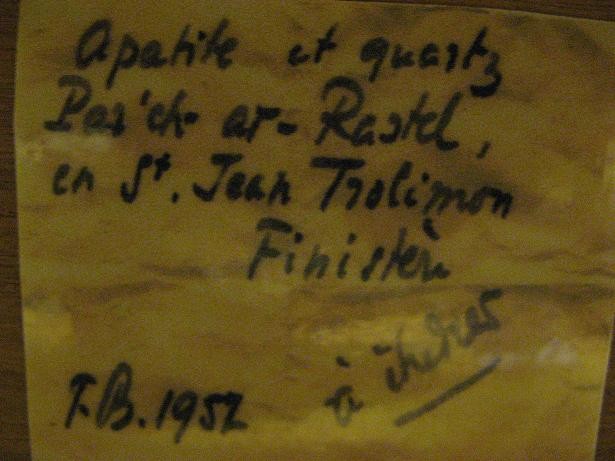 Apatite et quartz
Parc'ch-ar-Rastel,
en St. Jean Trolimon
Finistère
à
T.B. 1952